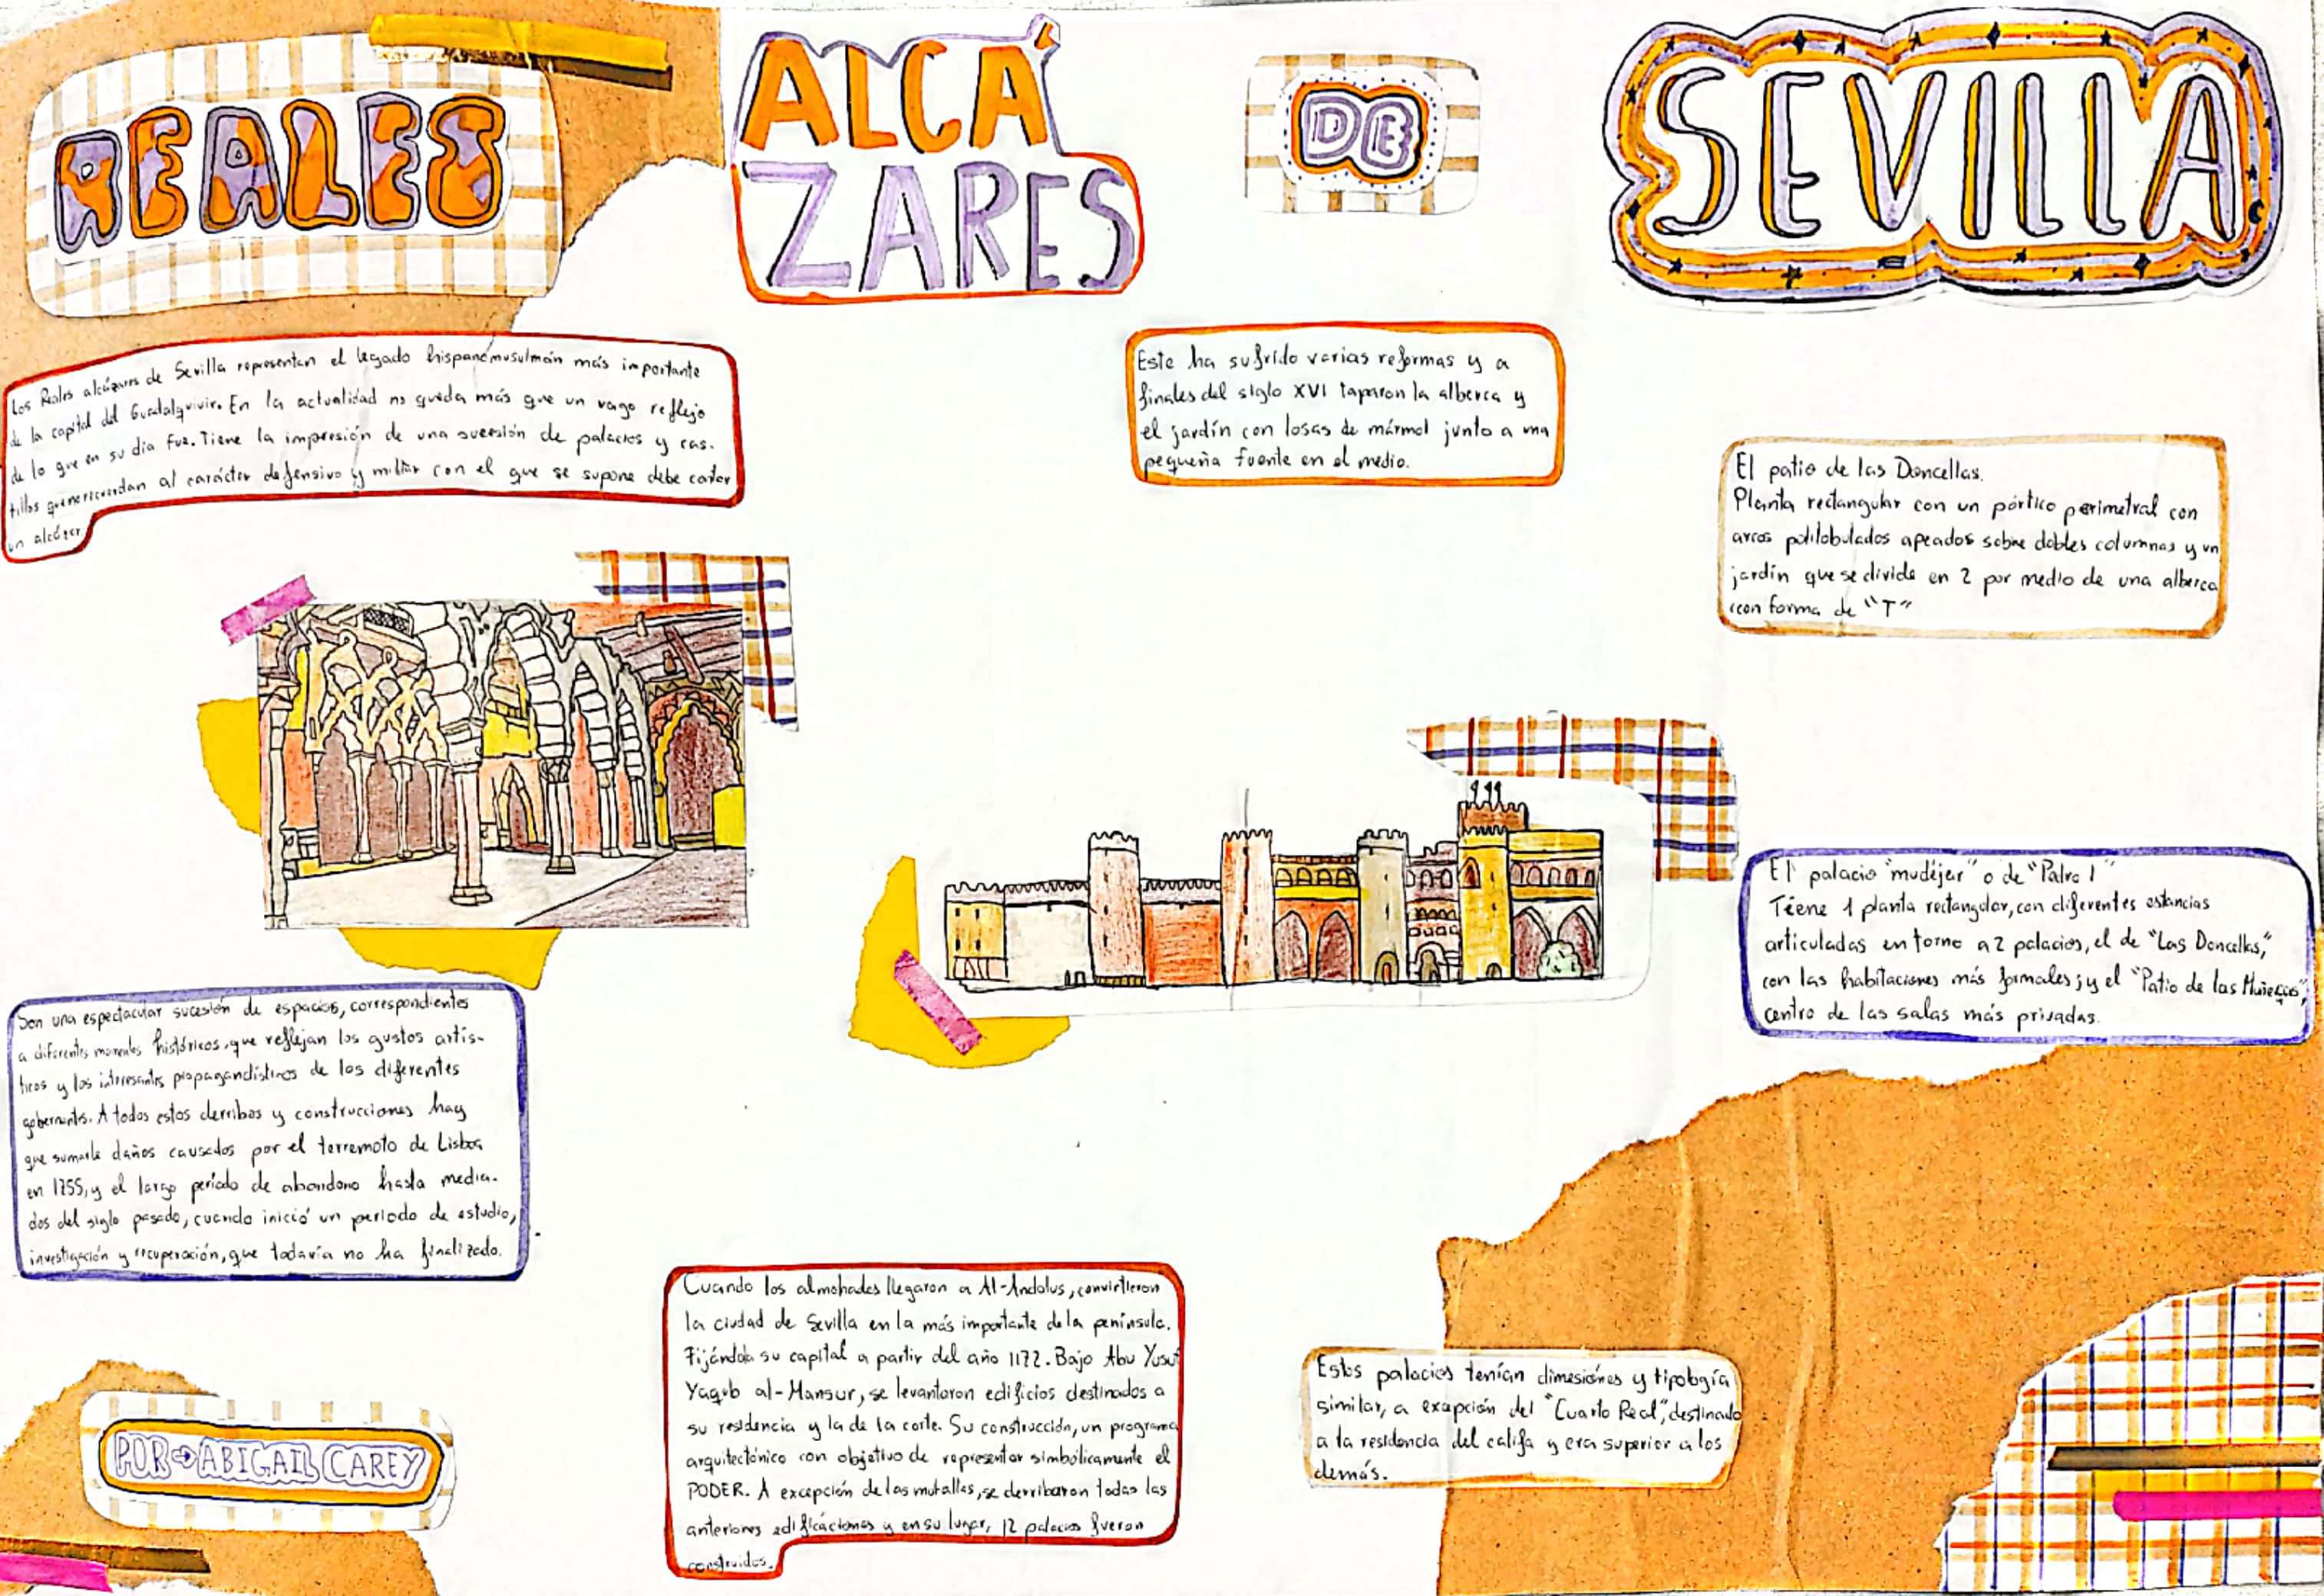 REALES
ALCÁ
ZARES
DE
SEVILLA
Los Reales alcázares de Sevilla representan el legado hispanomusulmán más importante
de la capital del Guadalquivir. En la actualidad no queda más que un vago reflejo
de lo que en su día fue. Tiene la impresión de una sucesión de palacios y cas-
tillos que nos recuerdan al carácter defensivo y militar con el que se supone debe contar
un alcázar.
Este ha sufrido varias reformas y a
finales del siglo XVI taparon la alberca y
el jardín con losas de mármol junto a una
pequeña fuente en el medio.
El patio de las Doncellas.
Planta rectangular con un pórtico perimetral con
arcos polilobulados apeados sobre dobles columnas y un
jardín que se divide en 2 por medio de una alberca
con forma de "T"
El palacio "mudéjar" o de "Patro I"
Tiene 1 planta rectangular, con diferentes estancias
articuladas en torno a 2 palacios, el de "Las Doncellas",
con las habitaciones más formales; y el "Patio de las Muñecas",
centro de las salas más privadas.
Son una espectacular sucesión de espacios, correspondientes
a diferentes momentos históricos, que reflejan los gustos artís-
ticos y los interesantes propagandísticos de los diferentes
gobernantes. A todos estos derribos y construcciones hay
que sumarle daños causados por el terremoto de Lisboa
en 1755, y el largo período de abandono hasta media-
dos del siglo pasado, cuando inició un periodo de estudio,
investigación y recuperación, que todavía no ha finalizado.
Cuando los almohades llegaron a Al-Andalus, convirtieron
la ciudad de Sevilla en la más importante de la península.
Fijándola su capital a partir del año 1172. Bajo Abu Yusuf
Yaqub al-Mansur, se levantaron edificios destinados a
su residencia y la de la corte. Su construcción, un programa
arquitectónico con objetivo de representar simbólicamente el
PODER. A excepción de las mutallas, se derribaron todas las
anteriores edificaciones y en su lugar, 12 palacios fueron
construidos.
Estos palacios tenían dimesiónes y tipología
similar, a excepción del "Cuarto Real", destinado
a la residencia del califa y era superior a los
demás.
POR → ABIGAIL CAREY